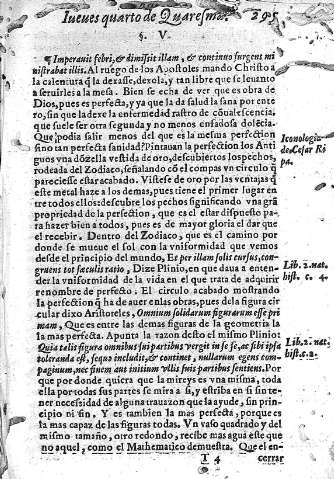 Iueues quarto de Quaresma. 295
§. V.
Imperauit febri, & dimissit illam, & continuo surgens mi
nistrabat illis. Al ruego de los Apostoles mando Christo a
la calentura q̃ la dexasse, dexola, y tan libre que se leuanto
a seruirles a la mesa. Bien se echa de ver que es obra de
Dios, pues es perfecta, y ya que la da salud la sana por ente
ro, sin que la dexe la enfermedad rastro de cõualescencia,
que suele ser otra segunda y no menos enfadosa dolẽcia.
Que podia salir menos del que es la mesma perfection
sino tan perfecta sanidad? Pintauan la perfection los Anti
guos vna dõzella vestida de oro, descubiertos los pechos,
rodeada del Zodiaco, señalando cõ el compas vn circulo q̃
pareciesse estar acabado. Viste se de oro por las vẽtajas q̃
este metal haze a los demas, pues tiene el primer lugar en
tre todos ellos: descubre los pechos significando vna grã
propriedad de la perfection, que es el estar dispuesto pa
ra hazer bien a todos, pues es de mayor gloria el dar que
el recebir. Dentro del Zodiaco, que es el camino por
donde se mueue el sol con la vniformidad que vemos
desde el principio del mundo, Es per illam solis cursus, con
gruens tot sæculis ratio, Dize Plinio, en que daua a enten-
der la vniformidad de la vida en el que trata de adquirir
renombre de perfecto. El circulo acabado mostrando
la perfection q̃ ha de auer en las obras, pues dela figura cir
cular dixo Aristoteles, Omnium solidarum figurarum esse pri
mam, Que es entre las demas figuras de la geometria la
la mas perfecta. Apunta la razon desto el mismo Plinio:
Quia talis figura omnibus sui partibus vergit in se se, ac sibi ipsa
toleranda est, seque includit, & continet, nullarum egens com-
paginum, nec finem aut initium vllis suis partibus sentiens. Por
que por donde quiera que la mireys es vna misma, toda
ella por todas sus partes se mira a si, y estriba en si sin te-
ner necessidad de alguna trauazon que la ayude, sin prin
cipio ni fin. Y es tambien la mas perfecta, porque es
la mas capaz de las figuras todas. Vn vaso quadrado y del
mismo tamaño, otro redondo, recibe mas agua este que
no aquel, como el Mathematico demuestra. Que el en-
T 4 cerrar
Iconologia
de Cesar Ri
pa.
Lib. 2. nat.
hist. c. 4.
Lib. 2. nat.
hist. c. 2.